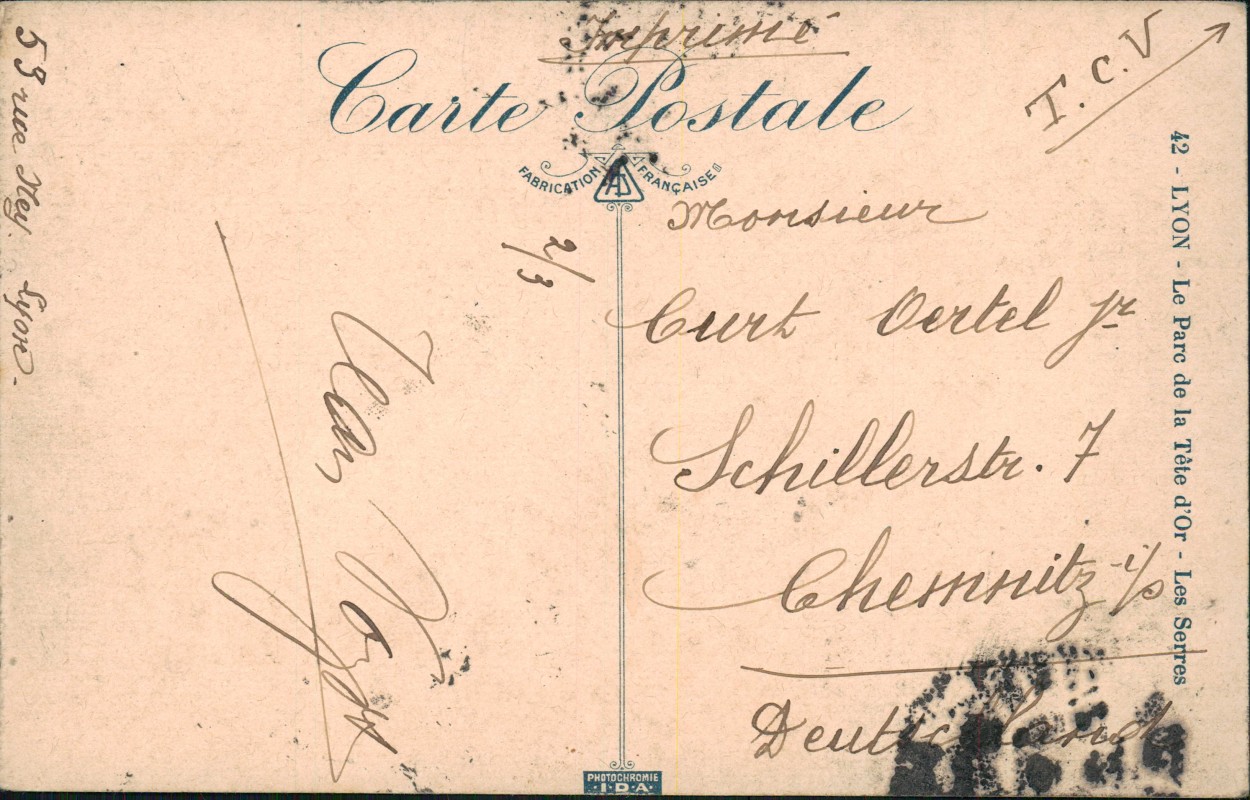 Imprimé
T.C.V
Carte Postale
FABRICATION FRANÇAISE
AD
53 rue Ney Lyon-
2/3
Monsieur
Curt Oertel jr
Schillerstr. 7
Chemnitz i/S
Deutschland
42 - LYON - Le Parc de la Tête d'Or - Les Serres
PHOTOCHROMIE
I.D.A.